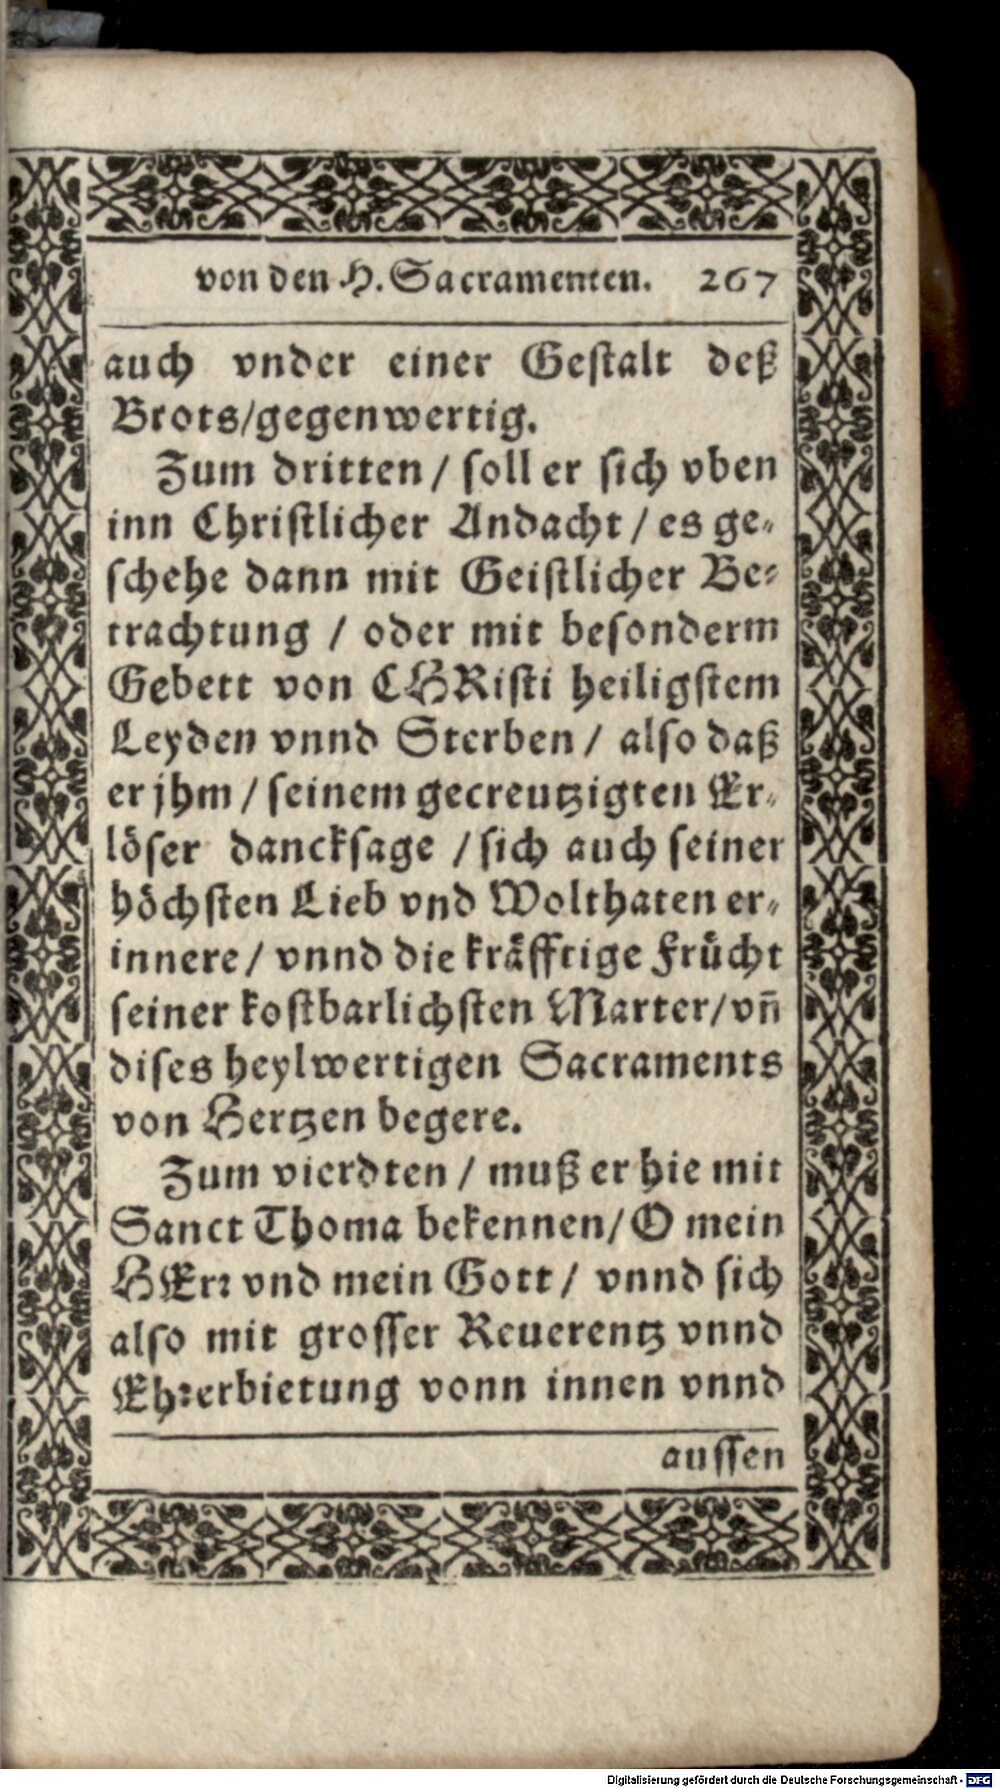 von den H. Sacramenten. 267
auch vnder einer Gestalt deß
Brots/gegenwertig.
Zum dritten / soll er sich vben
inn Christlicher Andacht / es ge-
schehe dann mit Geistlicher Be-
trachtung / oder mit besonderm
Gebett von CHRisti heiligstem
Leyden vnnd Sterben / also daß
er jhm / seinem gecreutzigten Er-
löser dancksage / sich auch seiner
höchsten Lieb vnd Wolthaten er-
innere / vnnd die kräfftige Frücht
seiner kostbarlichsten Marter/vñ
dises heylwertigen Sacraments
von Hertzen begere.
Zum vierdten / muß er hie mit
Sanct Thoma bekennen/ O mein
HErr vnd mein Gott / vnnd sich
also mit grosser Reuerentz vnnd
Ehrerbietung vonn innen vnnd
aussen
Digitalisierung gefördert durch die Deutsche Forschungsgemeinschaft - DFG